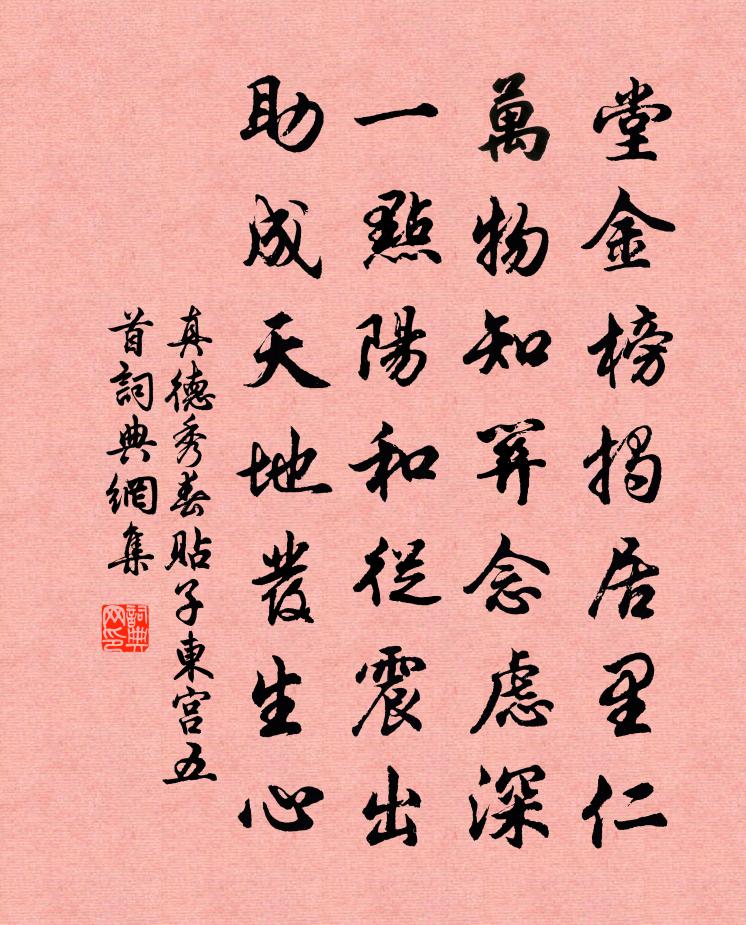 堂金榜揭居里仁
萬物知開念慮深
一點陽和從震出
助成天地發生心
真德秀春貼子東宮五
首詞典網集
詞典
网印